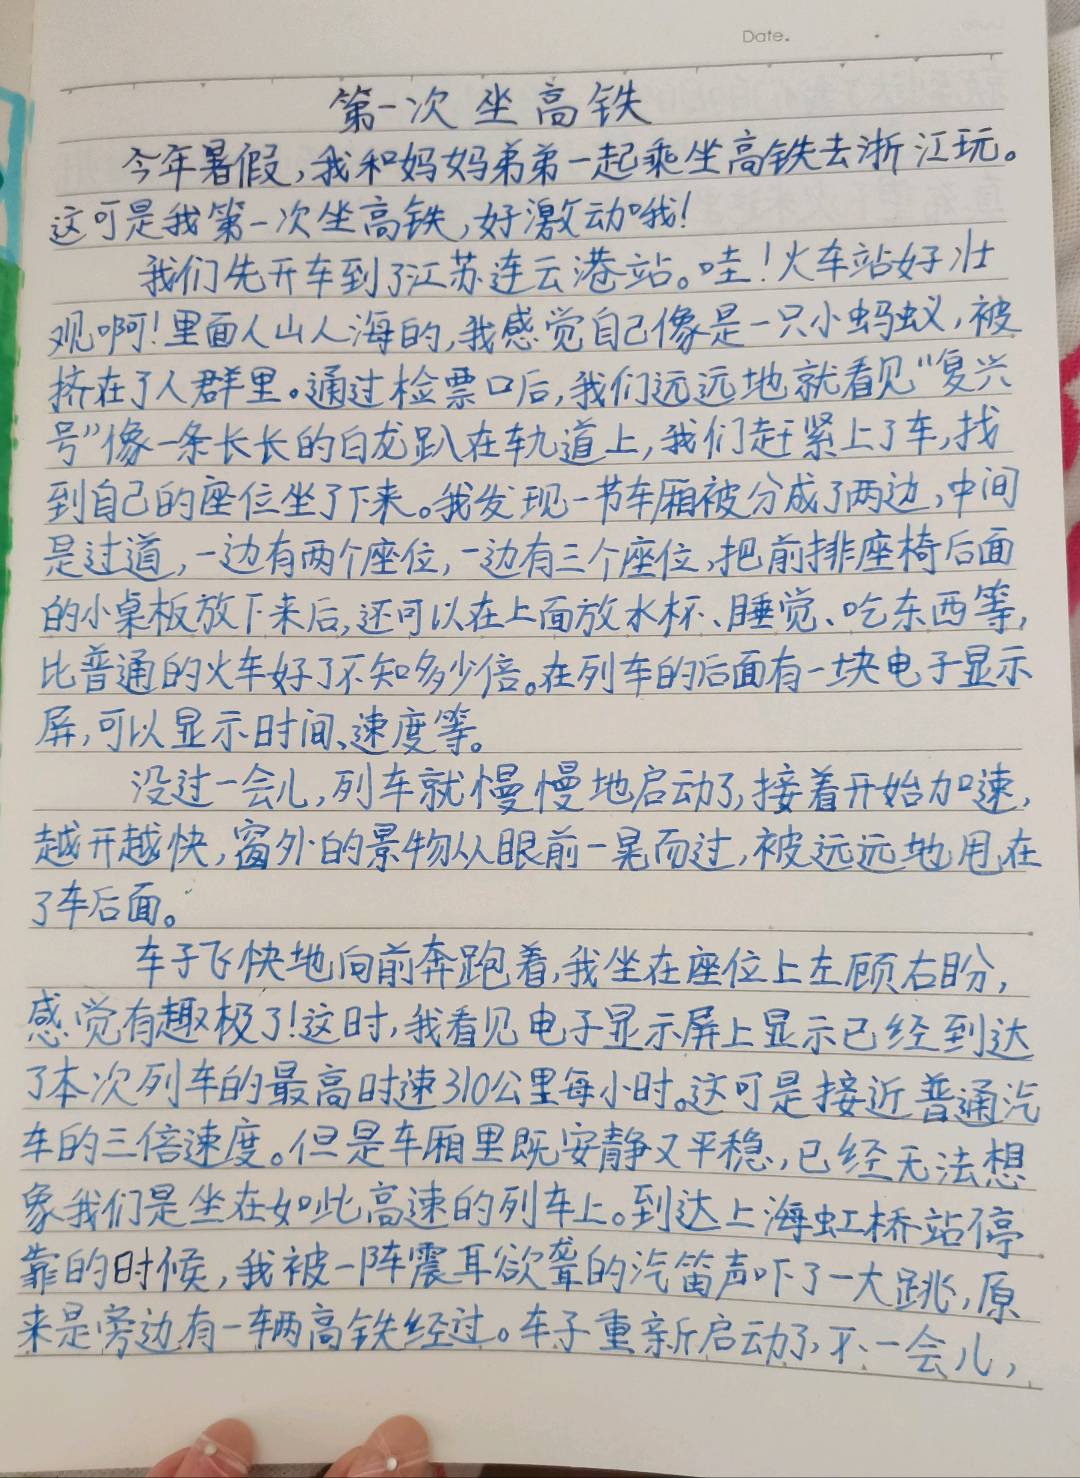 Date.
第一次坐高铁
今年暑假,我和妈妈弟弟一起乘坐高铁去浙江玩。
这可是我第一次坐高铁,好激动哦!
我们先开车到了江苏连云港站。哇!火车站好壮
观啊!里面人山人海的,我感觉自己像是一只小蚂蚁,被
挤在了人群里。通过检票口后,我们远远地就看见“复兴
号”像一条长长的白龙趴在轨道上,我们赶紧上了车,找
到自己的座位坐了下来。我发现一节车厢被分成了两边,中间
是过道,一边有两个座位,一边有三个座位,把前排座椅后面
的小桌板放下来后,还可以在上面放水杯、睡觉、吃东西等,
比普通的火车好了不知多少倍。在列车的后面有一块电子显示
屏,可以显示时间、速度等。
没过一会儿,列车就慢慢地启动了,接着开始加速,
越开越快,窗外的景物从眼前一晃而过,被远远地甩在
了车后面。
车子飞快地向前奔跑着,我坐在座位上左顾右盼,
感觉有趣极了!这时,我看见电子显示屏上显示已经到达
了本次列车的最高时速310公里每小时。这可是接近普通汽
车的三倍速度。但是车厢里既安静又平稳,已经无法想
象我们是坐在如此高速的列车上。到达上海虹桥站停
靠的时候,我被一阵震耳欲聋的汽笛声吓了一大跳,原
来是旁边有一辆高铁经过。车子重新启动了,不一会儿,